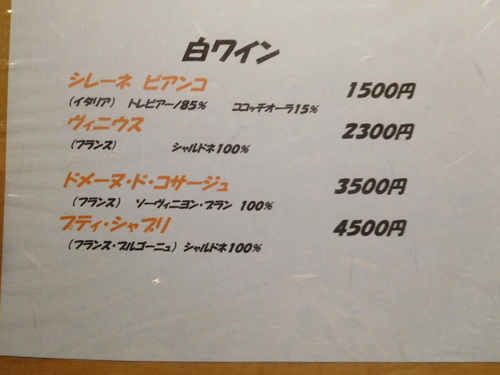 白ワイン
シレーネ ビアンコ 1500円
(イタリア) トレビアーノ85% ココッチオーラ15%
ヴィニウス 2300円
(フランス) シャルドネ100%
ドメーヌ・ド・コサージュ 3500円
(フランス) ソーヴィニヨン・ブラン 100%
プティ・シャブリ 4500円
(フランス・ブルゴーニュ) シャルドネ100%